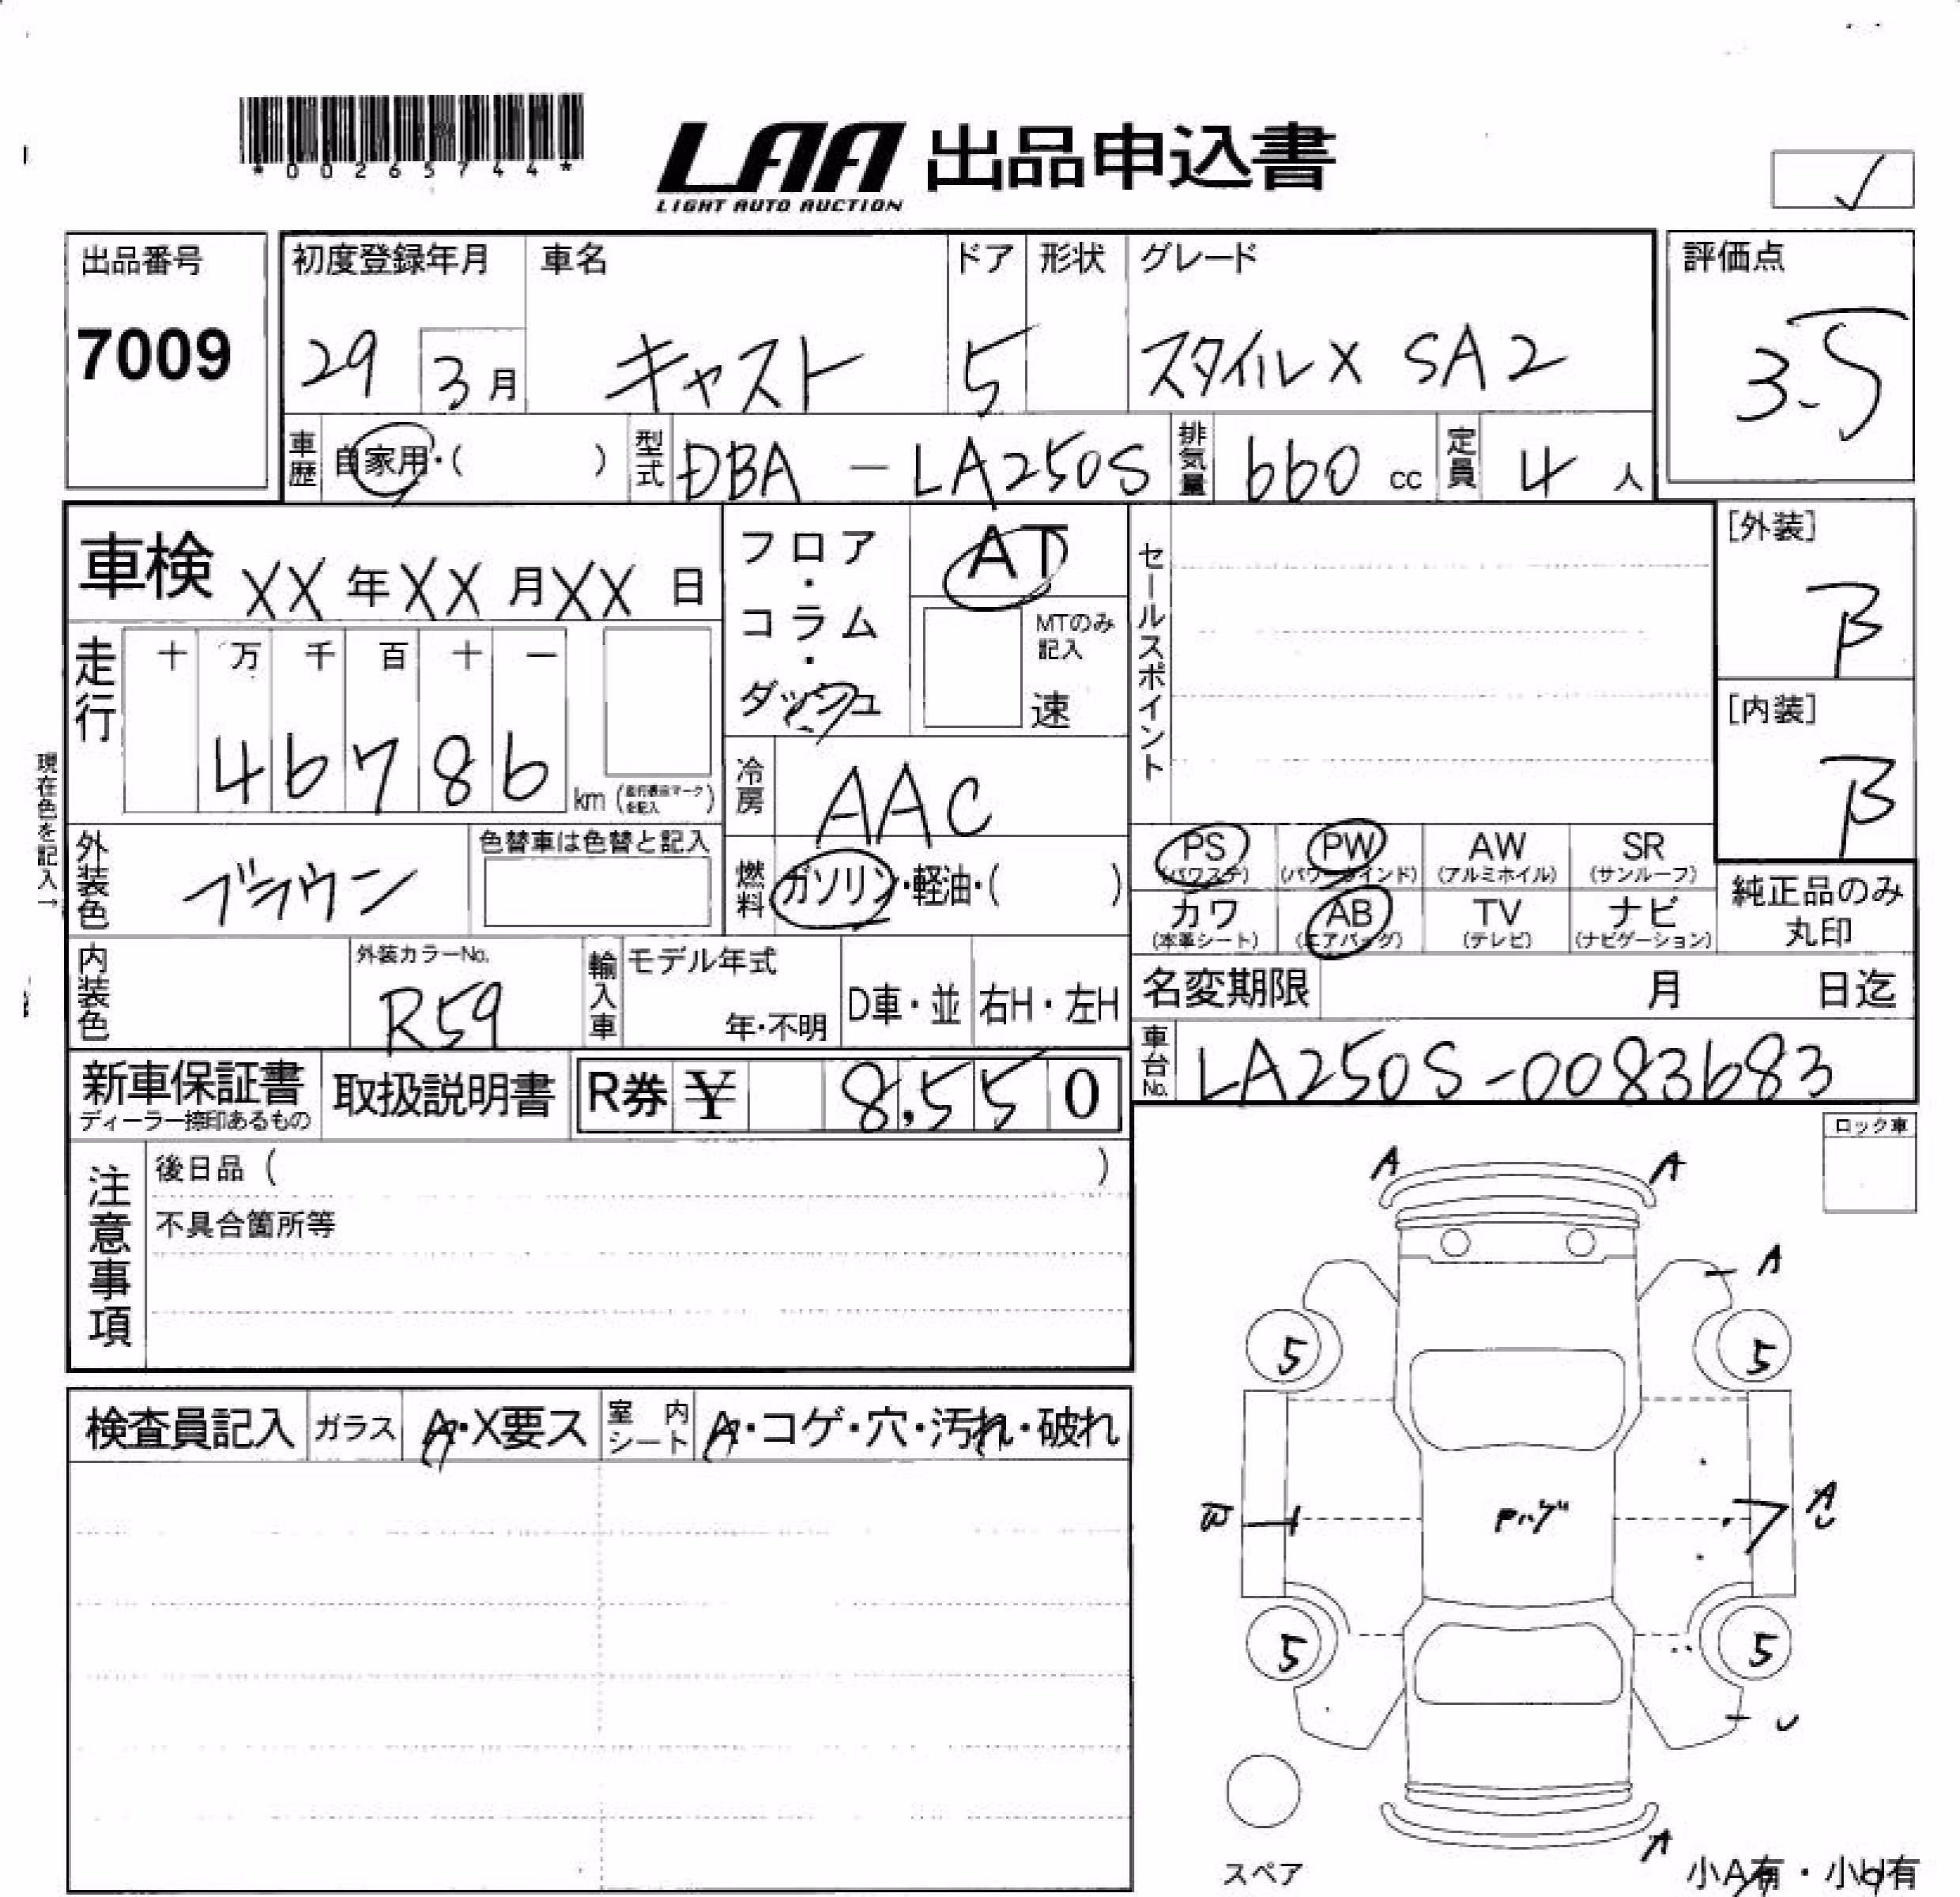 *00265744*
LAA 出品申込書
LIGHT AUTO AUCTION
✓
出品番号
7009
初度登録年月
29 3月
車名
キャスト
ドア
5
形状
グレード
スタイルX SA2
評価点
3.5
車歴 自家用・( )
型式 DBA-LA250S
排気量 660 cc
定員 4 人
車検 XX年XX月XX日
フロア・コラム・ダッシュ
AT
MTのみ記入
速
セールスポイント
[外装]
B
[内装]
B
走行
十 万 千 百 十 一
46786 km (走行表示マークを記入)
現在色を記入→
冷房 AAC
外装色 ブラウン
色替車は色替と記入
燃料 ガソリン・軽油・( )
PS (パワステ)
PW (パワーウインド)
AW (アルミホイル)
SR (サンルーフ)
カワ (本革シート)
AB (エアバッグ)
TV (テレビ)
ナビ (ナビゲーション)
純正品のみ丸印
内装色
外装カラーNo.
R59
輸入車
モデル年式
年・不明
D車・並
右H・左H
名変期限 月 日迄
車台No. LA250S-0083683
新車保証書
ディーラー捺印あるもの
取扱説明書
R券 ¥ 8,550
ロック車
注意事項
後日品 ( )
不具合箇所等
検査員記入
ガラス A・X要ス
室内シート A・コゲ・穴・汚れ・破れ
A A
A
5 5
W
A
U
5 5
U
A
スペア
小A有・小U有